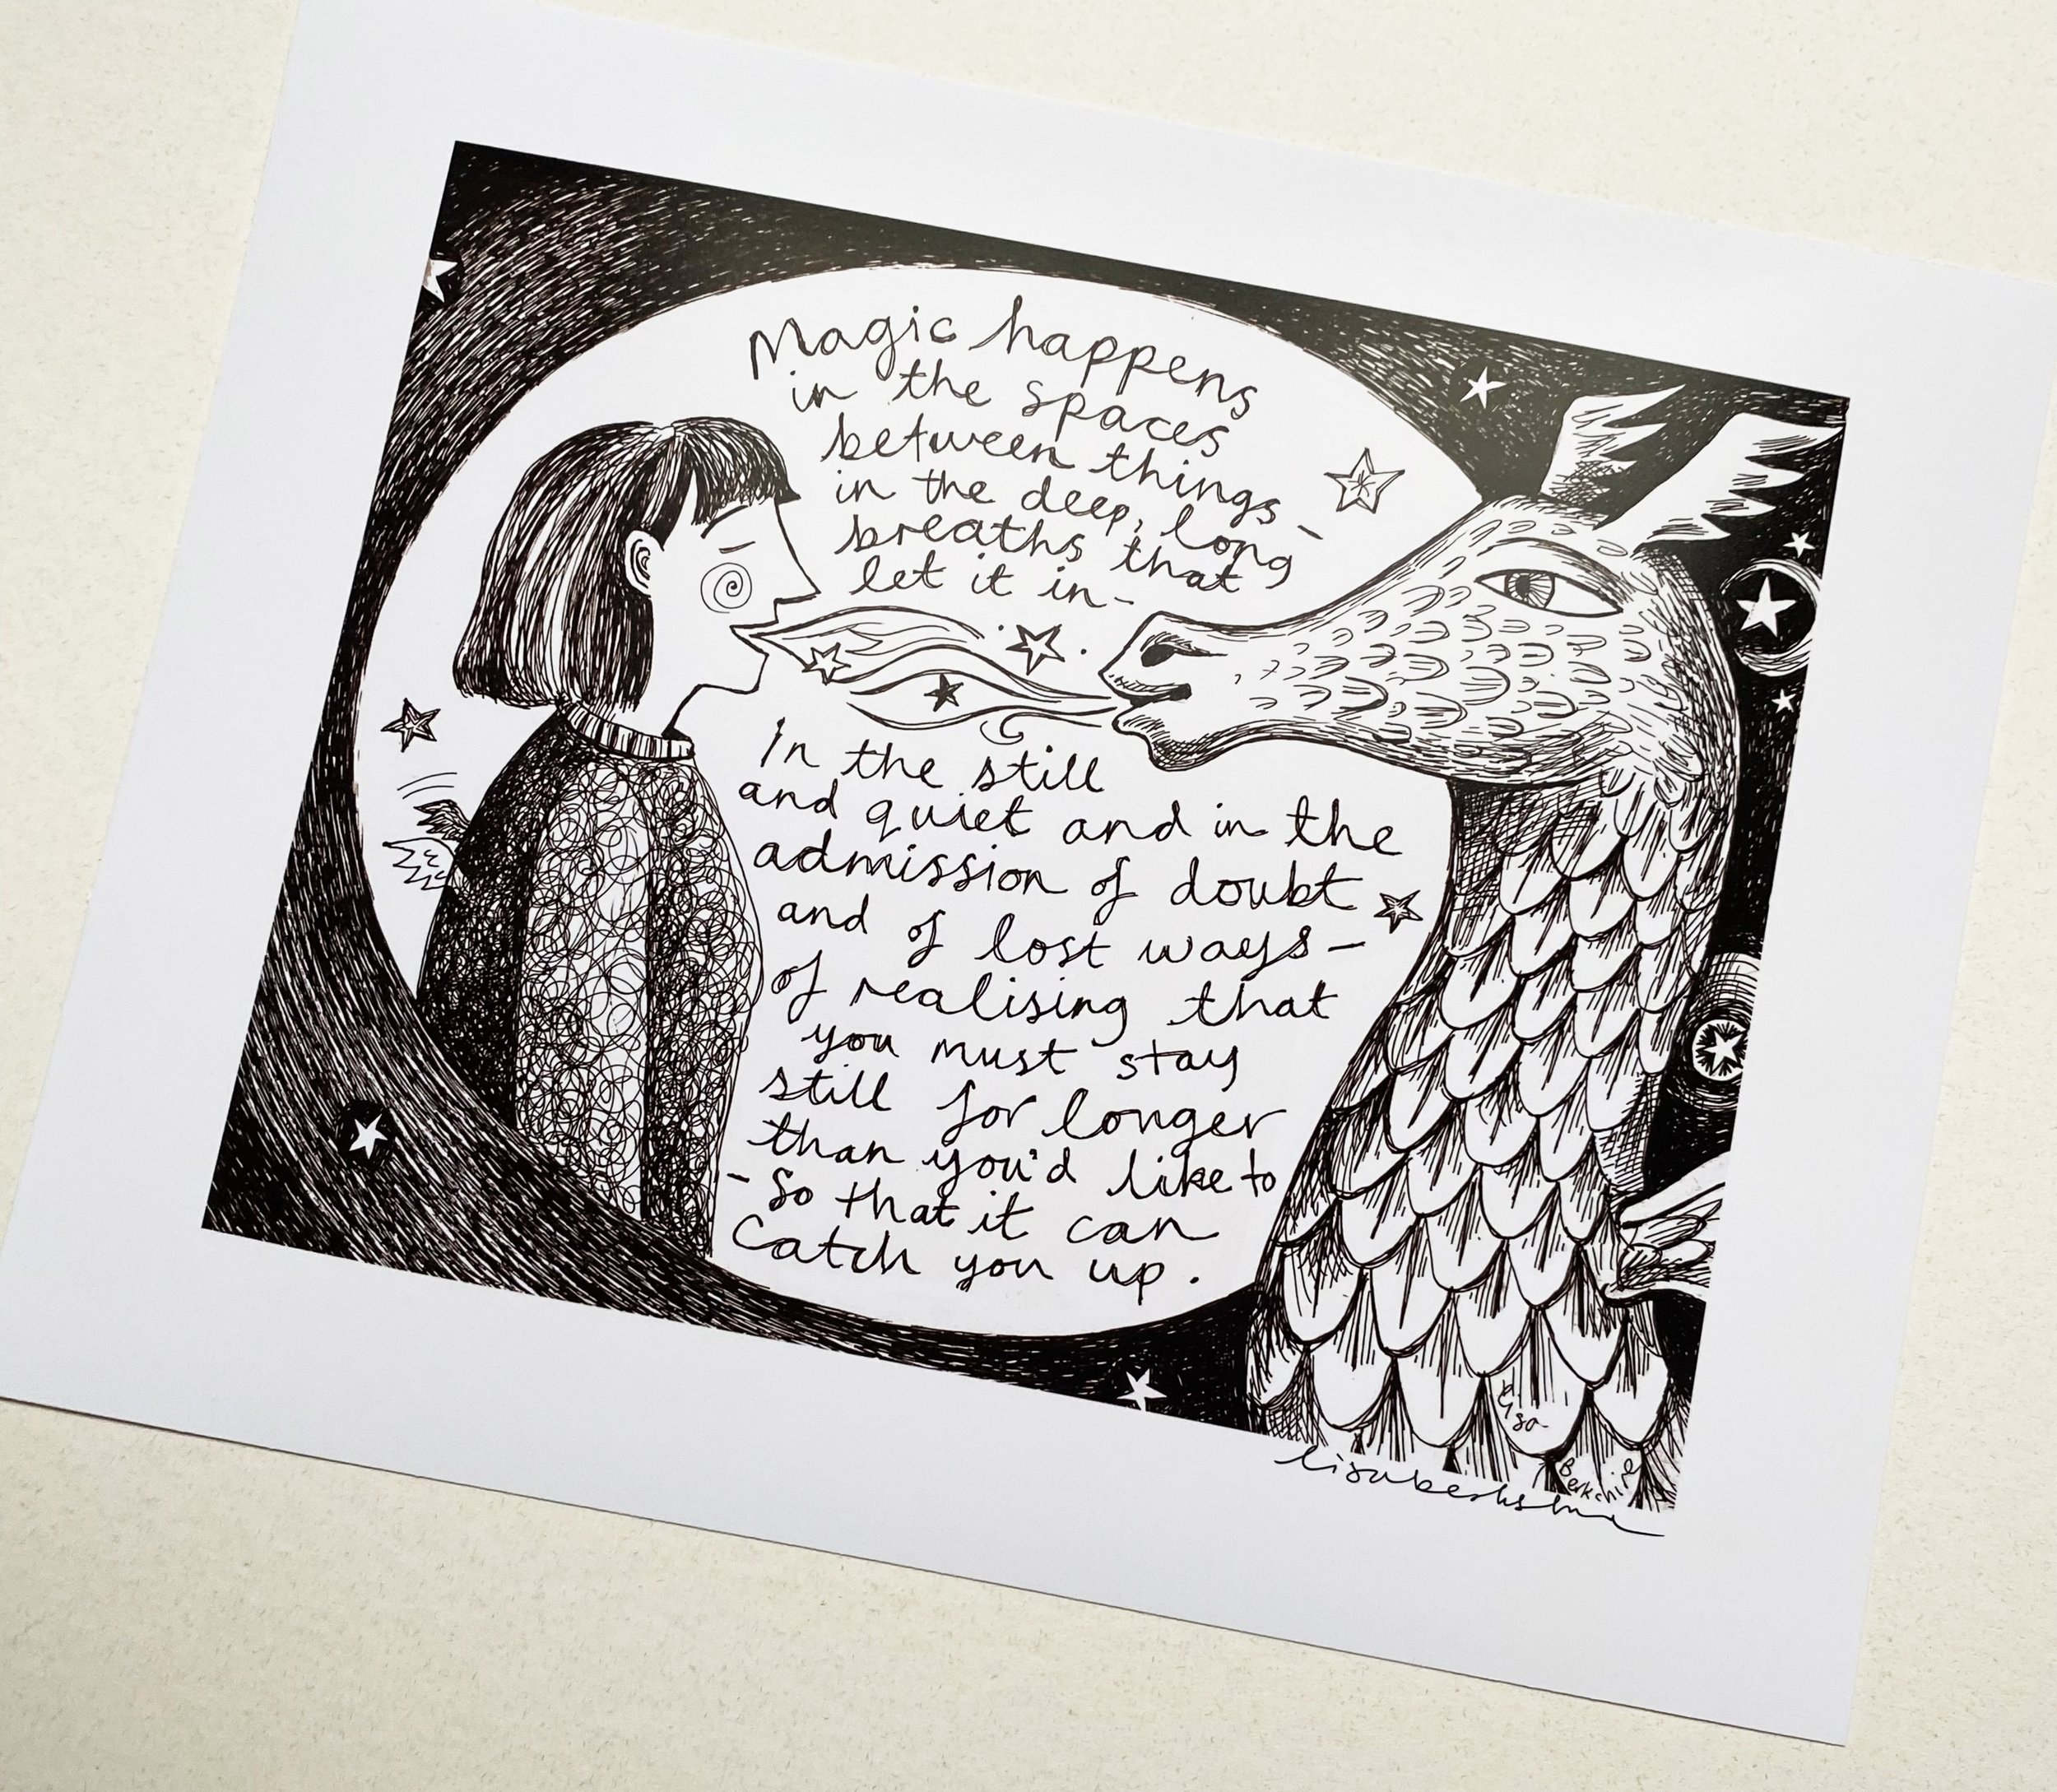 Magic happens
in the spaces
between things -
in the deep, long
breaths that
let it in -
In the still
and quiet and in the
admission of doubt
and of lost ways -
of realising that
you must stay
still for longer
than you'd like to
- So that it can
Catch you up.
Lisa
Berkshire
lisaberkshire